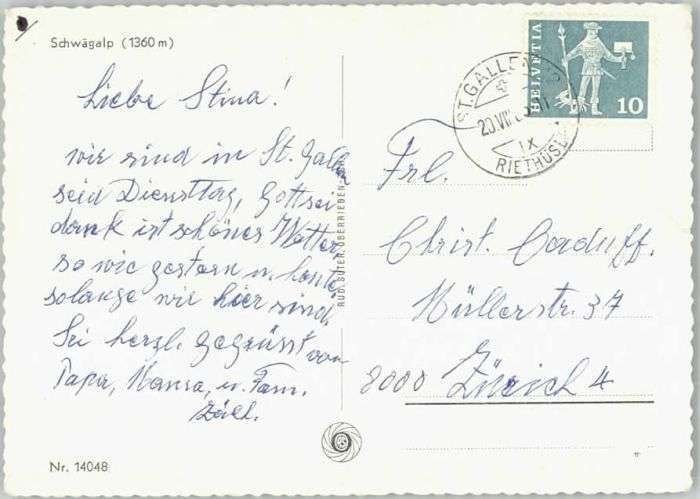 Schwägalp (1360 m)
Liebe Stina!
wir sind in St. Gallen
seid Diensttag, Gottsei
dank ist schönes Wetter,
so wie gestern u. heute
solange wir hier sind.
Sei herzl. gegrüsst von
Papa, Mama, u. Fam.
Zäch.
Nr. 14048
RUD. SUTER, OBERRIEDEN
HELVETIA
10
ST. GALLEN
20.VIII
IX
RIETHÜSLI
Frl.
Christ. Caduff.
Müllerstr. 37
8000 Zürich 4